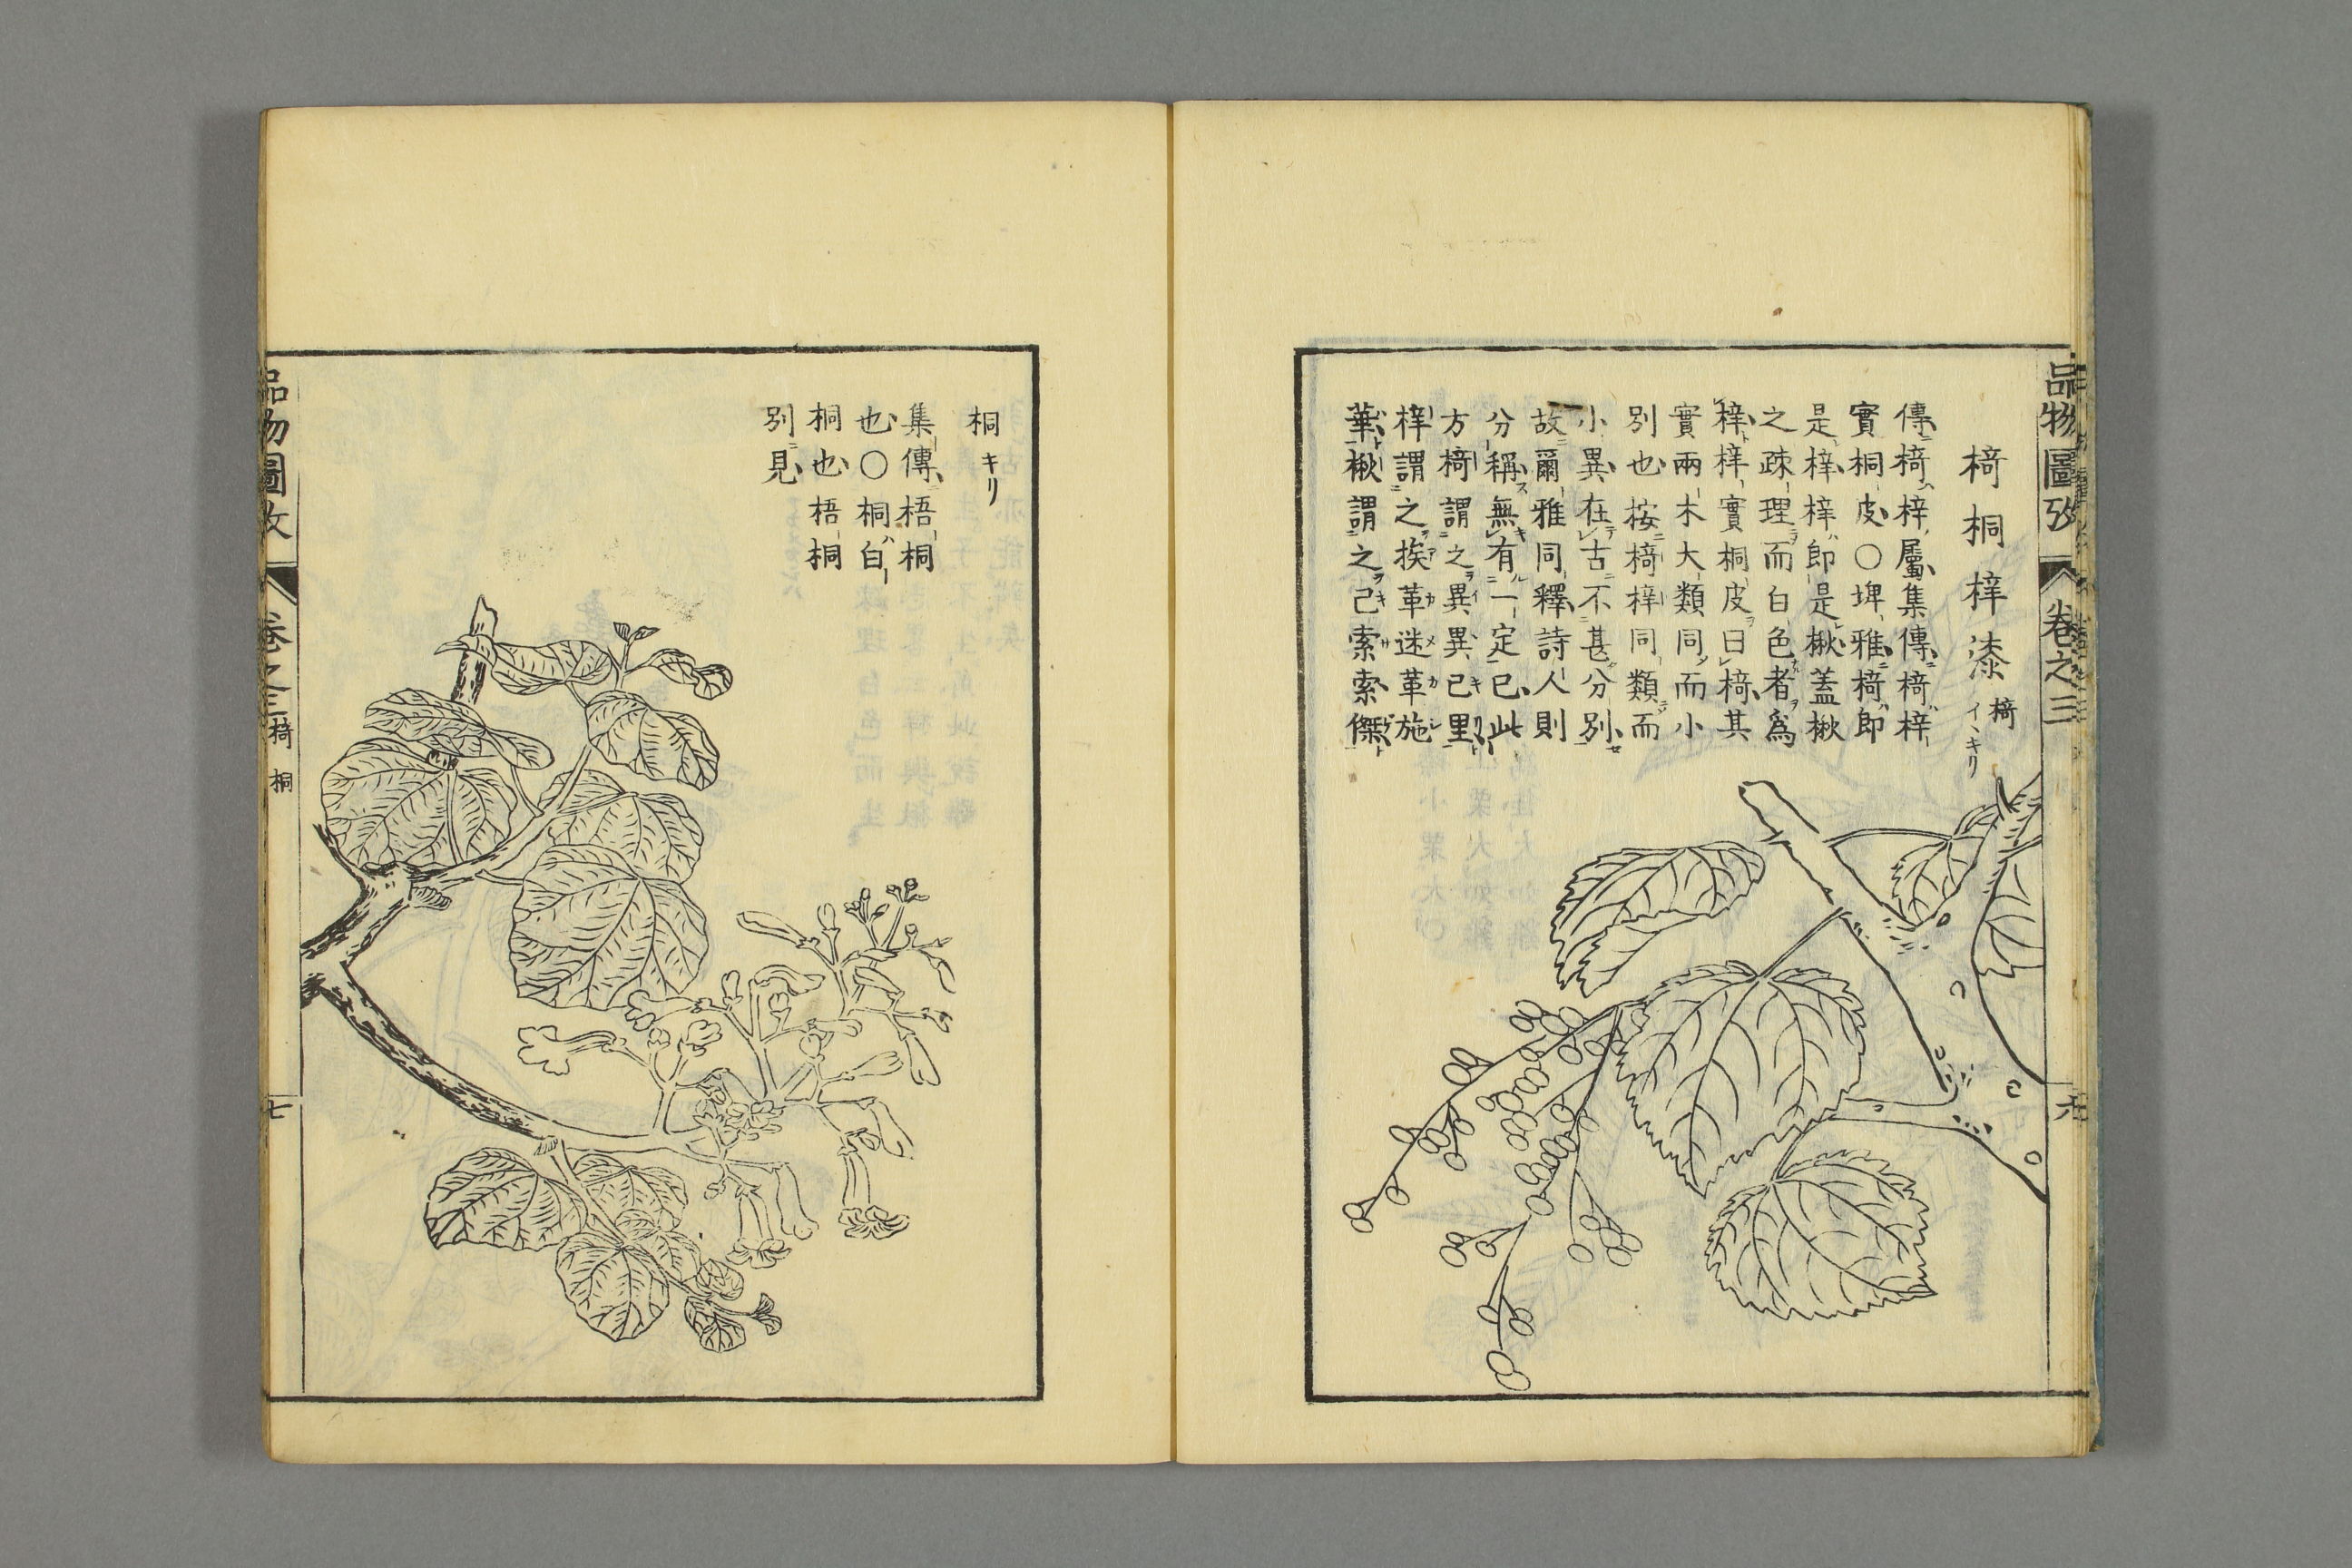 品物圖攷
卷之三
六
椅桐梓漆 椅 イヽキリ
傳椅梓屬集傳椅梓
實桐皮〇埤雅椅即
是梓梓即是楸蓋楸
之疎理而白色者爲
梓梓實桐皮曰椅其
實兩木大類同而小
別也按椅梓同類而
小異在古不甚分別
故爾雅同釋詩人則
分稱無有一定已此
方椅謂之異異己里
梓謂之挨革迷革施
華楸謂之己索索傑
桐 キリ
集傳梧桐
也〇桐白
桐也梧桐
別見
品物圖攷
卷之三
椅 桐
七